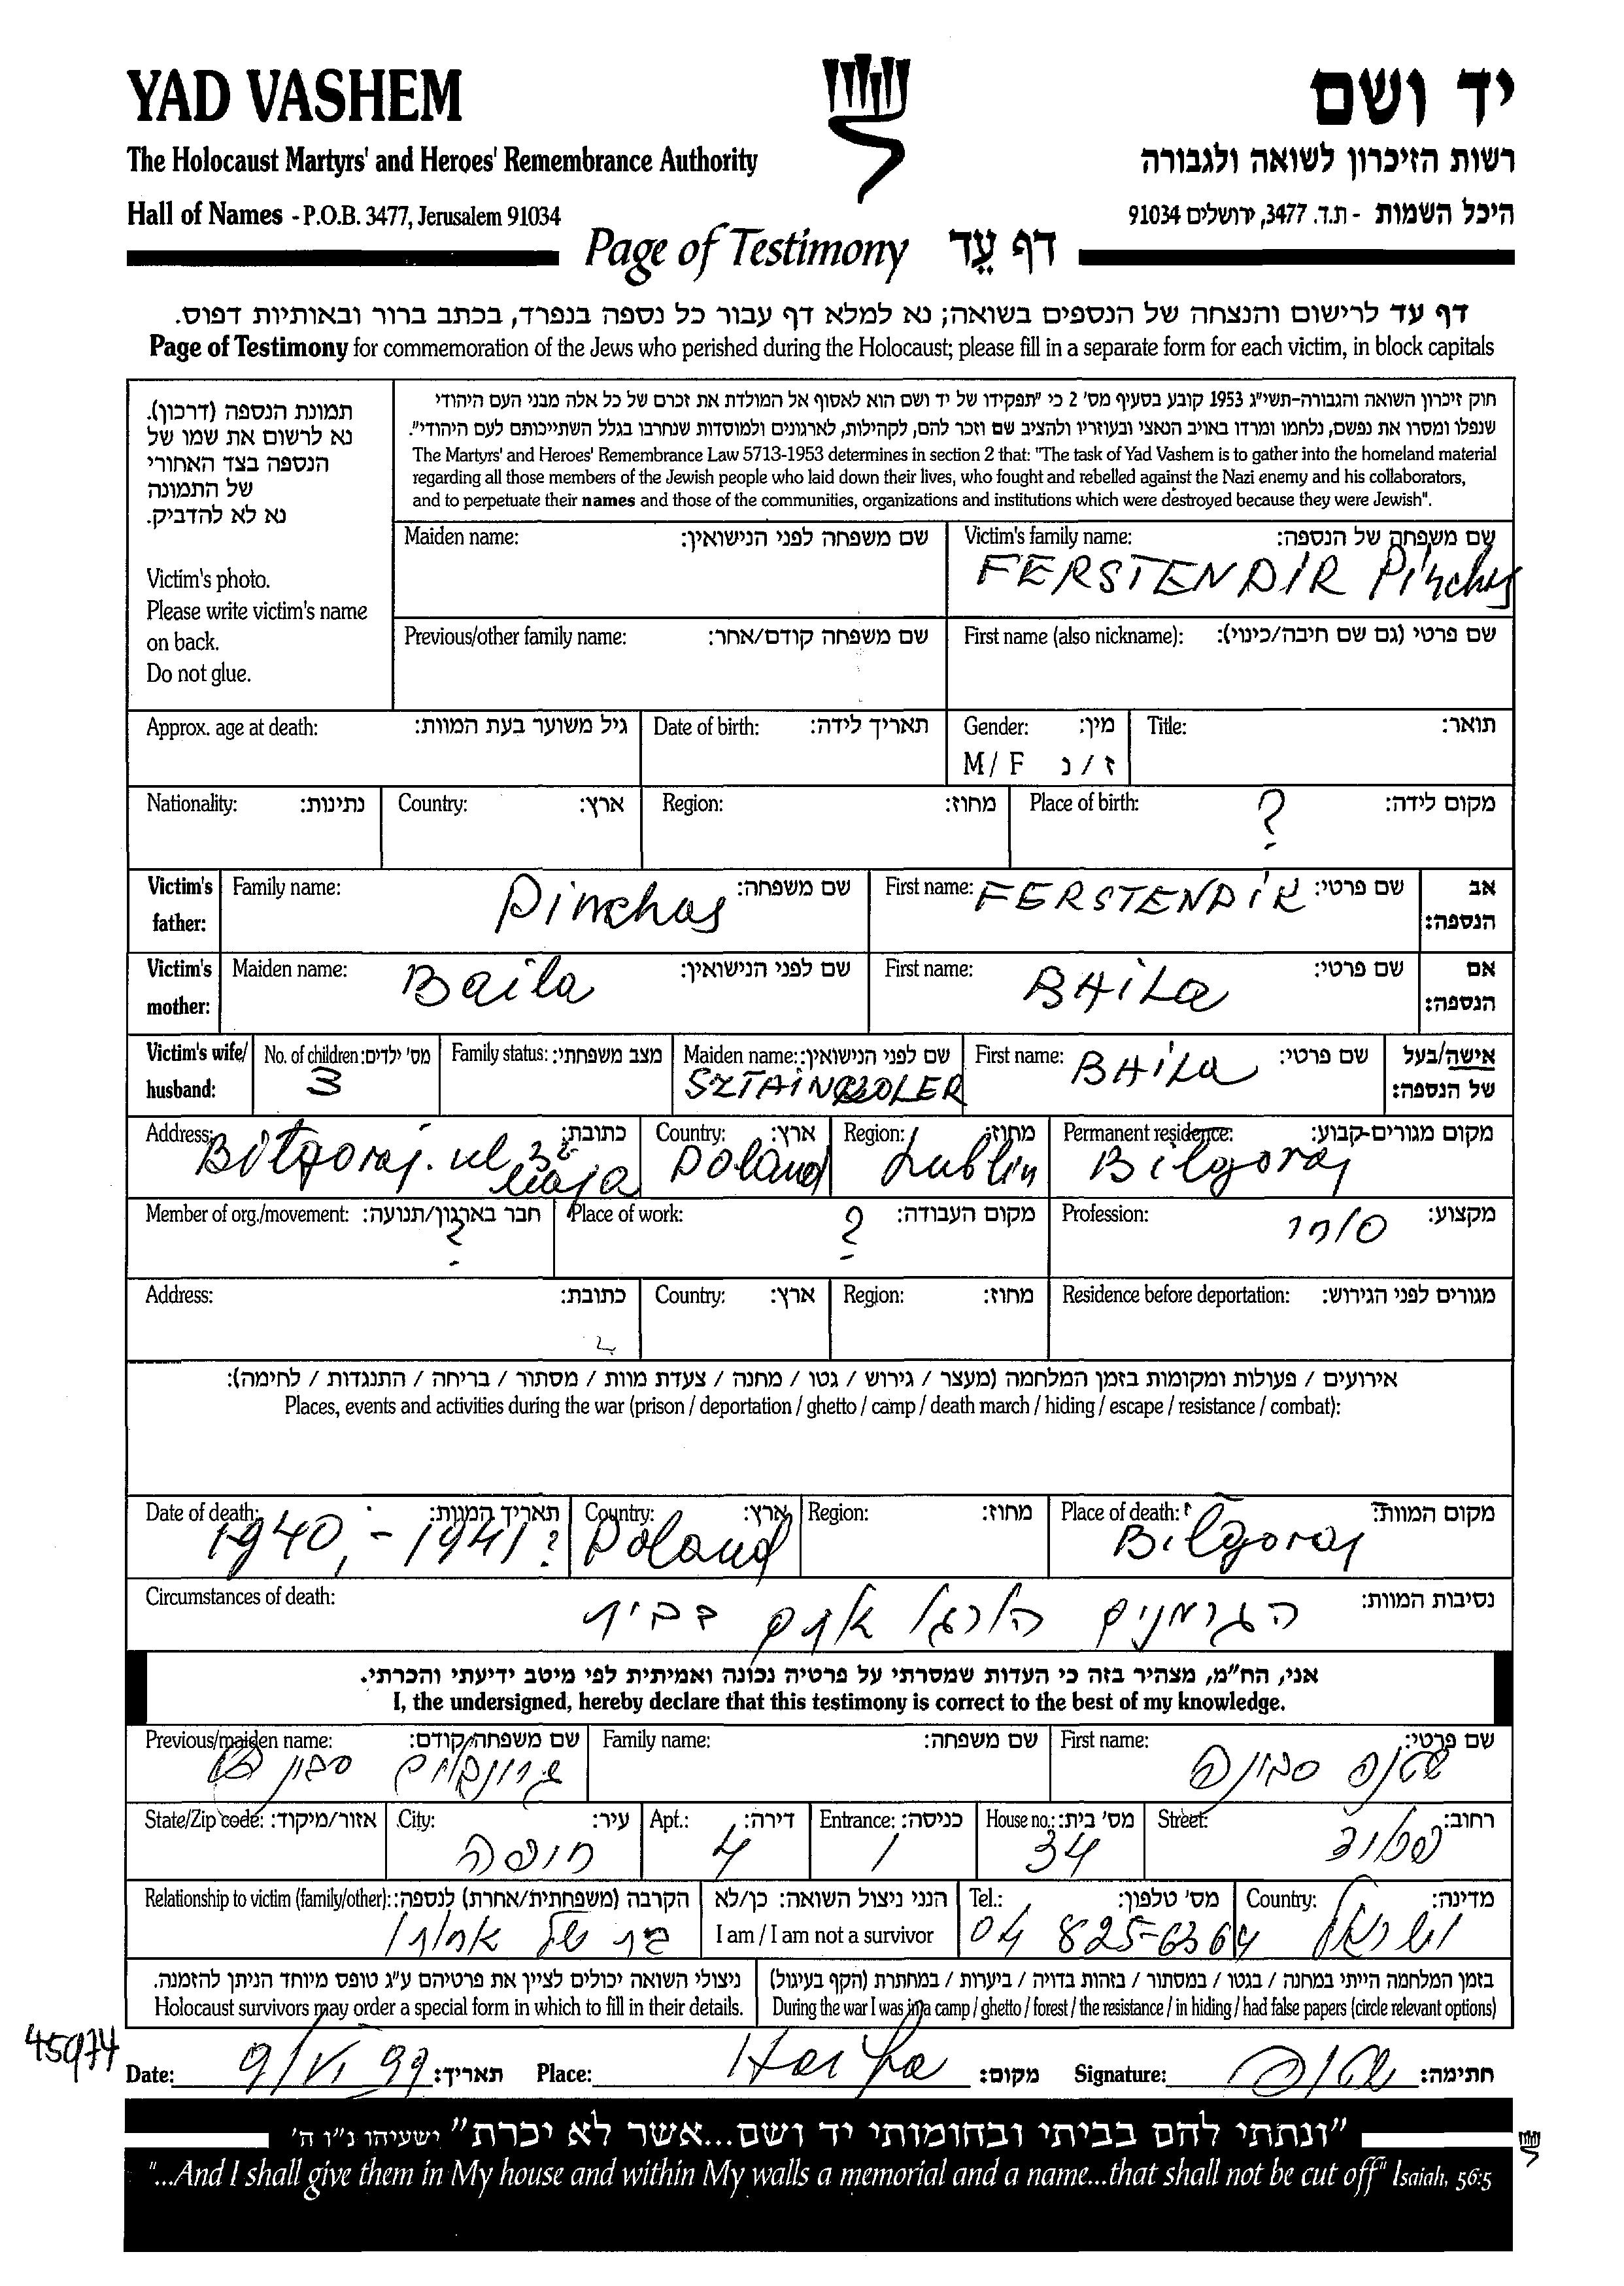 YAD VASHEM
יד ושם
The Holocaust Martyrs' and Heroes' Remembrance Authority
רשות הזיכרון לשואה ולגבורה
Hall of Names - P.O.B. 3477, Jerusalem 91034
היכל השמות - ת.ד. 3477, ירושלים 91034
Page of Testimony דף עֵד
דף עד לרישום והנצחה של הנספים בשואה; נא למלא דף עבור כל נספה בנפרד, בכתב ברור ובאותיות דפוס.
Page of Testimony for commemoration of the Jews who perished during the Holocaust; please fill in a separate form for each victim, in block capitals
תמונת הנספה (דרכון).
נא לרשום את שמו של
הנספה בצד האחורי
של התמונה
נא לא להדביק.
Victim's photo.
Please write victim's name
on back.
Do not glue.
חוק זיכרון השואה והגבורה-תשי"ג 1953 קובע בסעיף מס' 2 כי "תפקידו של יד ושם הוא לאסוף אל המולדת את זכרם של כל אלה מבני העם היהודי
שנפלו ומסרו את נפשם, נלחמו ומרדו באויב הנאצי ובעוזריו ולהציב שם וזכר להם, לקהילות, לארגונים ולמוסדות שנחרבו בגלל השתייכותם לעם היהודי".
The Martyrs' and Heroes' Remembrance Law 5713-1953 determines in section 2 that: "The task of Yad Vashem is to gather into the homeland material
regarding all those members of the Jewish people who laid down their lives, who fought and rebelled against the Nazi enemy and his collaborators,
and to perpetuate their names and those of the communities, organizations and institutions which were destroyed because they were Jewish".
Maiden name: שם משפחה לפני הנישואין:
Victim's family name: שם משפחה של הנספה:
FERSTENDIR Pinchus
Previous/other family name: שם משפחה קודם/אחר:
First name (also nickname): שם פרטי (גם שם חיבה/כינוי):
Approx. age at death: גיל משוער בעת המוות:
Date of birth: תאריך לידה:
Gender: מין:
M / F ז / נ
Title: תואר:
Nationality: נתינות:
Country: ארץ:
Region: מחוז:
Place of birth: מקום לידה:
?
Victim's father: Family name: שם משפחה: Pinchus
First name: שם פרטי: FERSTENDIR
אב הנספה:
Victim's mother: Maiden name: שם לפני הנישואין: Baila
First name: שם פרטי: BAiLa
אם הנספה:
Victim's wife/ husband: No. of children: מס' ילדים: 3
Family status: מצב משפחתי:
Maiden name: שם לפני הנישואין:
First name: שם פרטי: BAiLa
אישה/בעל של הנספה:
Address: כתובת: Bilgoraj. ul 3
Maja
Country: ארץ: Poland
Region: מחוז: Lublin
Permanent residence: מקום מגורים-קבוע: Bilgoraj
Member of org./movement: חבר בארגון/תנועה: ?
Place of work: מקום העבודה: ?
Profession: מקצוע: סוחר
Address: כתובת:
Country: ארץ:
Region: מחוז:
Residence before deportation: מגורים לפני הגירוש:
אירועים / פעולות ומקומות בזמן המלחמה (מעצר / גירוש / גטו / מחנה / צעדת מוות / מסתור / בריחה / התנגדות / לחימה):
Places, events and activities during the war (prison / deportation / ghetto / camp / death march / hiding / escape / resistance / combat):
Date of death: תאריך המוות: 1940, - 1941?
Country: ארץ: Poland
Region: מחוז:
Place of death: מקום המוות: Bilgoraj
Circumstances of death: נסיבות המוות:
הגרמנים הרגו אותם בבית
אני, הח"מ, מצהיר בזה כי העדות שמסרתי על פרטיה נכונה ואמיתית לפי מיטב ידיעתי והכרתי.
I, the undersigned, hereby declare that this testimony is correct to the best of my knowledge.
Previous/maiden name: שם משפחה/קודם:
Family name: שם משפחה:
First name: שם פרטי:
State/Zip code: אזור/מיקוד:
City: עיר: חיפה
Apt.: דירה: 4
Entrance: כניסה: 1
House no.: מס' בית: 34
Street: רחוב:
Relationship to victim (family/other): הקרבה (משפחתית/אחרת) לנספה:
בת של אחותו
הנני ניצול השואה: כן/לא
I am / I am not a survivor
Tel.: מס' טלפון: 04 825-6364
Country: מדינה: ישראל
ניצולי השואה יכולים לציין את פרטיהם ע"ג טופס מיוחד הניתן להזמנה.
Holocaust survivors may order a special form in which to fill in their details.
בזמן המלחמה הייתי במחנה / בגטו / במסתור / בזהות בדויה / ביערות / במחתרת (הקף בעיגול)
During the war I was in a camp / ghetto / forest / the resistance / in hiding / had false papers (circle relevant options)
45974
Date: 9/VI 99 תאריך:
Place: Haifa מקום:
Signature: חתימה:
"ונתתי להם בביתי ובחומותי יד ושם...אשר לא יכרת" ישעיהו נ"ו ה'
"...And I shall give them in My house and within My walls a memorial and a name...that shall not be cut off" Isaiah, 56:5